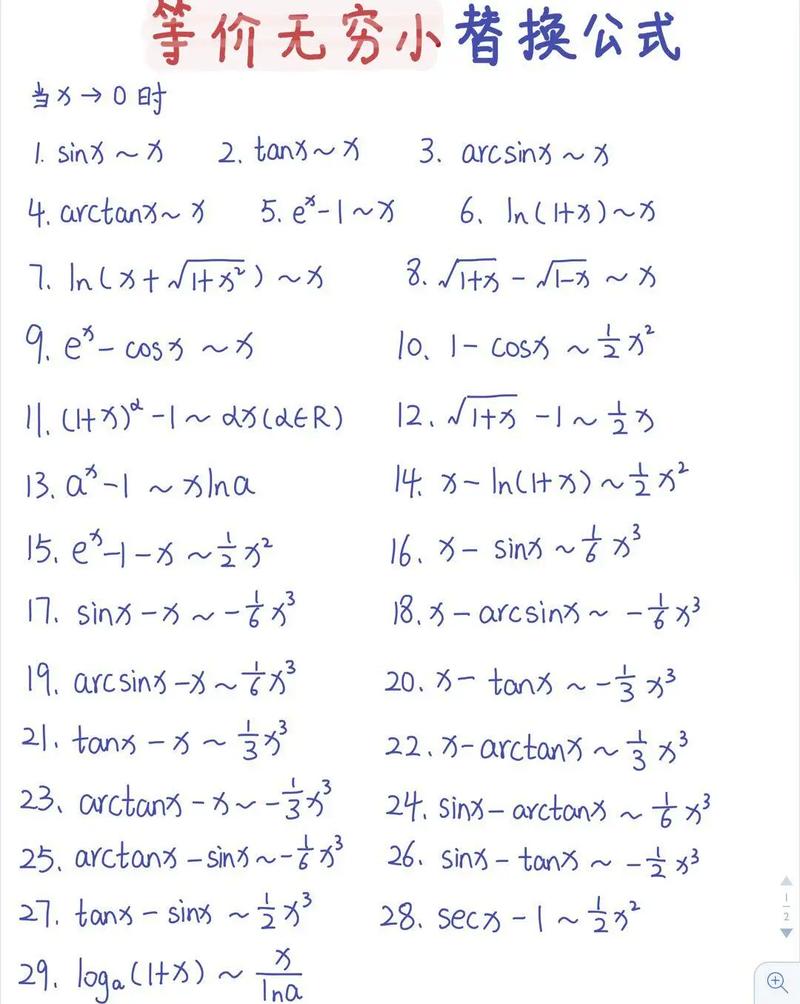 等价无穷小替换公式
当x→0时
1. sinx~x 2. tanx~x 3. arcsinx~x
4. arctanx~x 5. eˣ-1~x 6. ln(1+x)~x
7. ln(x+√(1+x²))~x 8. √(1+x) - √(1-x) ~ x
9. eˣ-cosx ~x 10、1-cosx ~ 1/2 x²
11. (1+x)^α-1~αx(α∈R) 12. √(1+x) -1~ 1/2 x
13. aˣ-1 ~xlna 14. x-ln(1+x)~ 1/2 x²
15. eˣ-1-x ~ 1/2 x² 16、x- sinx ~ 1/6 x³
17. sinx-x ~ -1/6 x³ 18. x-arcsinx~ -1/6 x³
19. arcsinx-x~ 1/6 x³ 20. x- tanx ~ -1/3 x³
21. tanx-x ~ 1/3 x³ 22. x-arctanx ~ 1/3 x³
23、arctanx-x~ -1/3 x³ 24. sinx-arctanx ~ 1/6 x³
25. arctanx-sinx~ -1/6 x³ 26. sinx-tanx ~ -1/2 x³
27. tanx-sinx ~ 1/2 x³ 28. secx-1~ 1/2 x²
29. logₐ(1+x) ~ x/lna
1/2